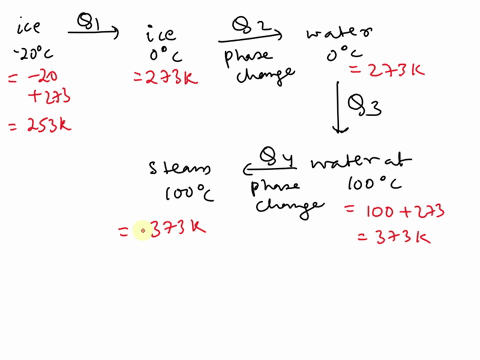 ice Q1 ice Q2 water
-20°C 0°C phase change 0°C
= -20 +273 = 273K = 273K
= 253K
Q3
steam Q4 water at
100°C phase change 100°C
= 373K = 100 + 273
= 373K